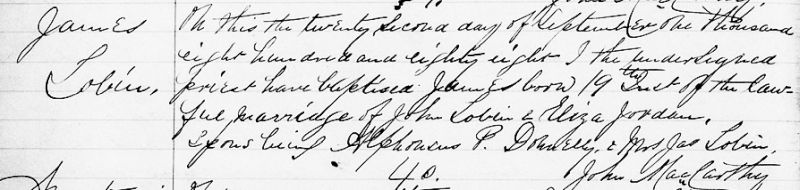 James
Lobin,
On this the twenty second day of September one thousand
eight hundred and eighty eight I the undersigned
priest have baptised James born 19th Inst of the law-
ful marriage of John Lobin & Eliza Jordan,
Spons being Alphonsus P. Donnelly, & Mrs Jas Lobin,
John MacCarthy